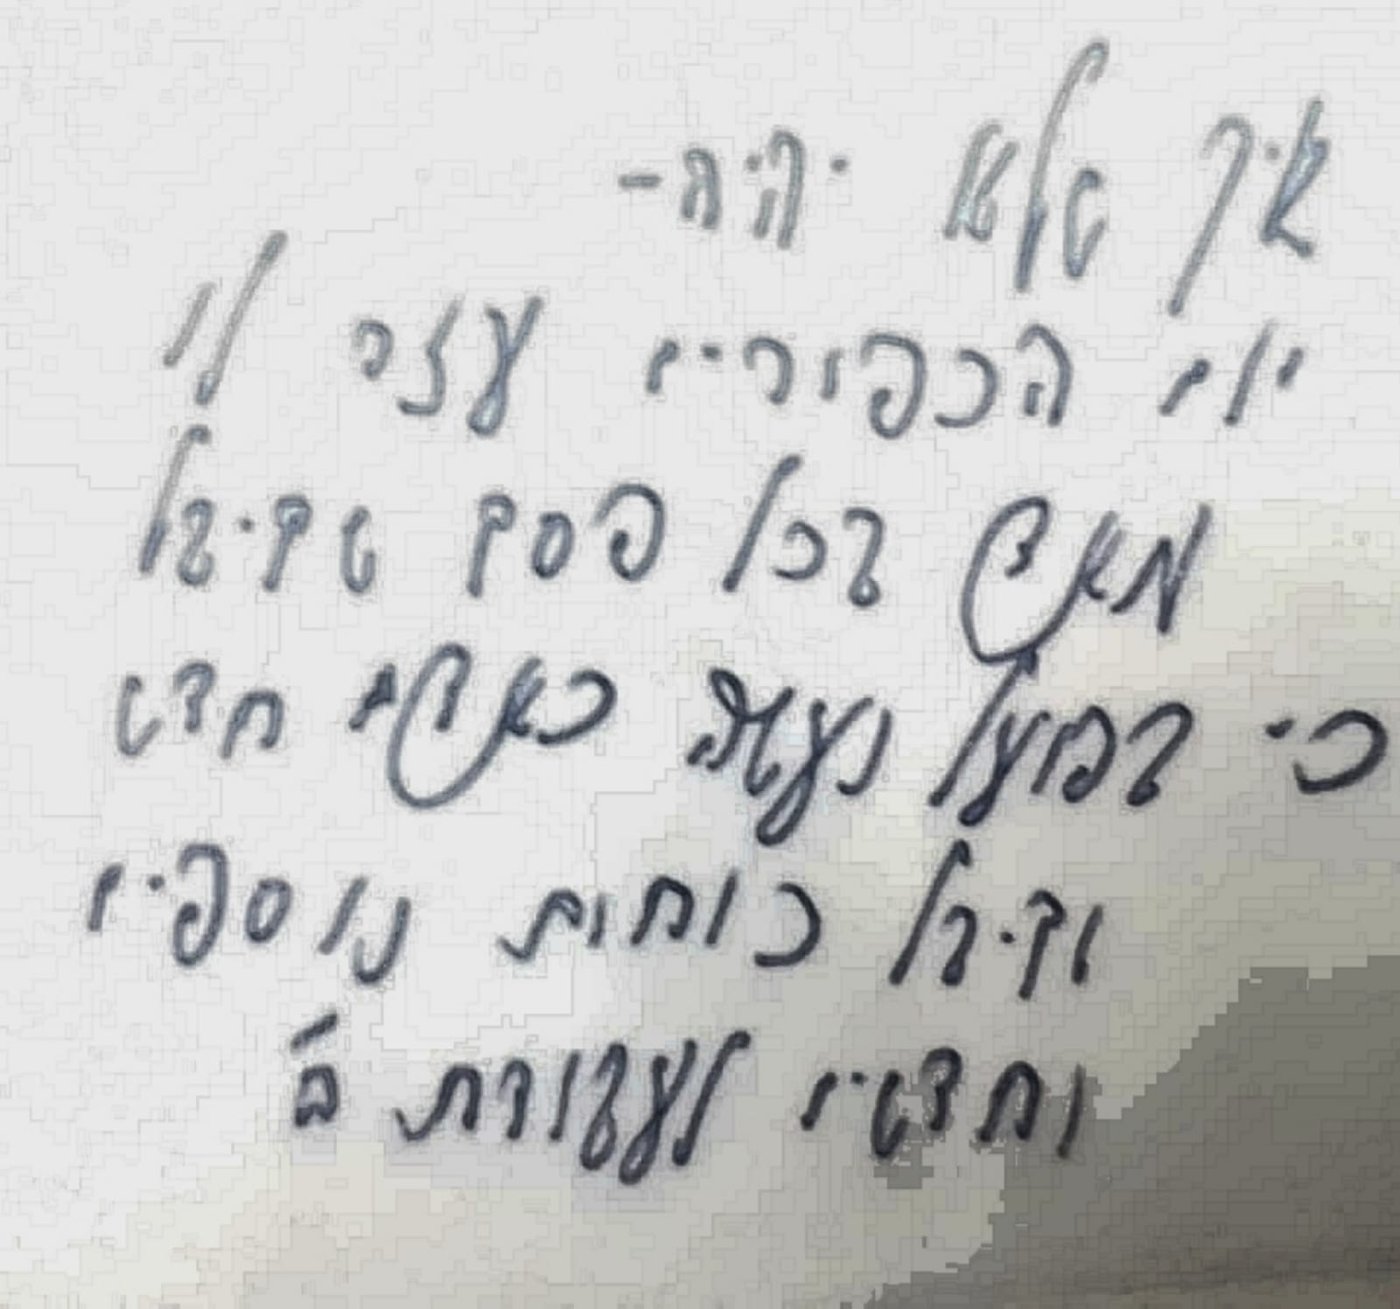 איך שלא יהיה-
יום הכפורים עזר לי
מאד בכל פסק שקיבל
כי בפועל נעשה כאדם חדש
וקיבל כוחות נוספים
וחדשים לעבודת ה'